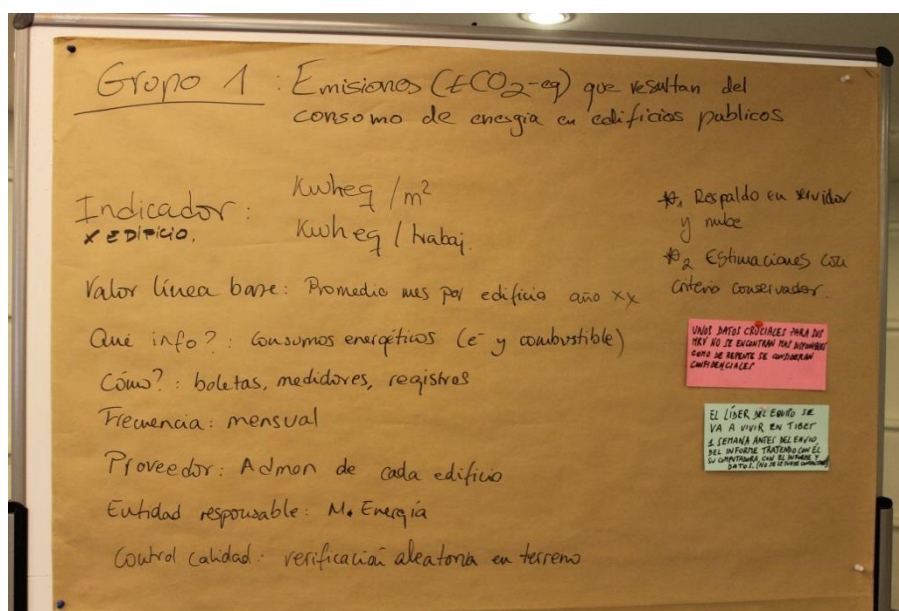 Grupo 1 : Emisiones (tCO2-eq) que resultan del
consomo de energia en edificios publicos
Indicador :
X EDIFICIO.
Kwheq /m²
Kwheq / trabaj.
Valor línea base: Promedio mes por edificio año xx
Qué info? : consumos energéticos (e- y combustible)
Cómo? : boletas, medidores, registros
Frecuencia: mensual
Proveedor: Admon de cada edificio
Entidad responsable: M. Energía
Control calidad: verificación aleatoria en terreno
*1 Respaldo en servidor
y nube
*2 Estimaciones con
criterio conservador.
UNOS DATOS CRUCIALES PARA SUS
MRV NO SE ENCUENTRAN MAS DISPONIBLES
COMO DE REPENTE SE CONSIDERAN
CONFIDENCIALES
EL LÍDER DEL EQUIPO SE
VA A VIVIR EN TIBET
1 SEMANA ANTES DEL ENVIO
DEL INFORME TRAYENDO CON ÉL
SU COMPUTADORA CON EL INFORME Y
DATOS. (NO SE LE PUEDE